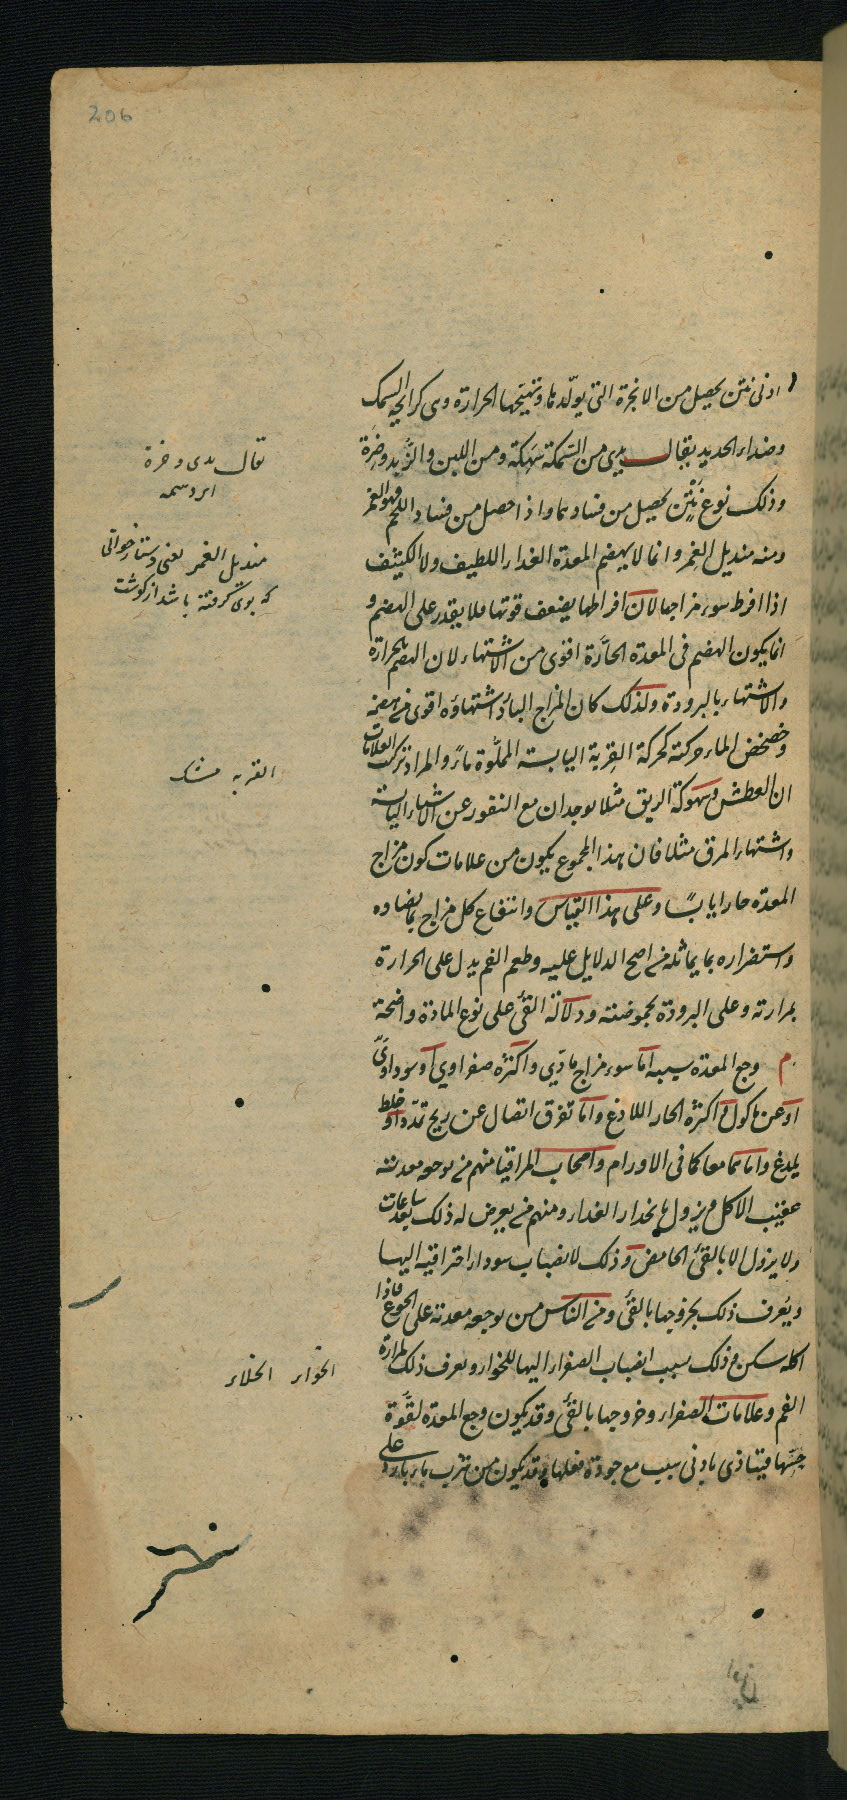 206
ادنى نتن يحصل من الابخرة التى يولّدها وتهيّجها الحرارة وهى كرائحة السمك
وصداء الحديد يقال يدى من السّمكة سَهِكة ومن اللبن والزبد وضِرة
وذلك نوع نَتْن يحصل من فسادهما واذا حصل من فساد اللحم فهو الغمر
ومنه منديل الغمر وانما لا يهضم المعدة الغداء اللطيف ولا الكثيف
اذا افرط سوء مزاجها لان افراطها يضعف قوتها فلا يقدر على الهضم و
انما يكون الهضم فى المعدة الحارّة اقوى من الاشتهاء لان الهضم بالحرارة
والاشتهاء بالبرودة ولذلك كان المزاج البارد اشتهاؤه اقوى من هضمه
وخضخض الماء حركته كحركة القربة اليابسة المملوّة ماءً والمراد بتركب العلامات
ان العطش وسهوكة الريق مثلا يوجدان مع النفور عن الاشياء اليابسة
واشتهاء المرق مثلا فان هذا المجموع يكون من علامات كون مزاج
المعدة حارا يابسًا وعلى هذا القياس وانتفاع كل مزاج بما يضاده
واستضراره بما يماثله من اصح الدلايل عليه وطعم الفم يدل على الحرارة
بمرارته وعلى البرودة بحموضته ودلالة القئ على نوع المادة واضحة
م وجع المعدة سببه اما سوء مزاج مادّى واكثره صفراوى او سوداوىّ
او عن ماكول واكثره الحار اللاذع واما تفرق اتصال عن ريح تمدّد او خلط
يلدغ واما هما معا كما فى الاورام واصحاب المراقيا منهم من يوجعه معدته
عقيب الاكل ويزول بانحدار الغداء ومنهم من يعرض له ذلك بعد ساعات
ولا يزول الا بالقئ الحامض وذلك لانصباب سوداء احتراقية اليها
ويُعرف ذلك بخروجها بالقئ ومن الناس من يوجعه معدته على الجوع فاذا
اكله سكن وذلك بسبب انصباب الصفراء اليها للخواء ويعرف ذلك بمرارة
الفم وعلامات الصفراء وخروجها بالقئ وقد يكون وجع المعدة لقُوّة
حسّها فيتاذى بادنى سبب مع جودة فعلها وقد يكون من شرب ماء بارد على
يقال يدى وضرة
منديل الغمر يعنى دستار خوانى
كه بوى گرفته باشد از گوشت
القربه مشك
الخواء الخلاء